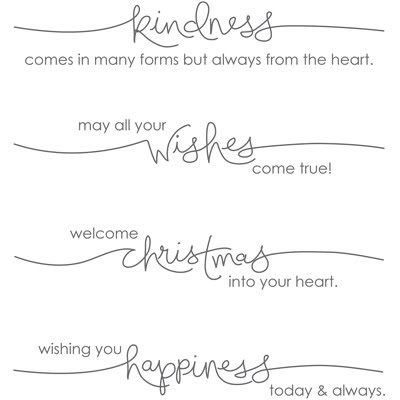 kindness
comes in many forms but always from the heart.
may all your
wishes
come true!
welcome
christmas
into your heart.
wishing you
happiness
today & always.